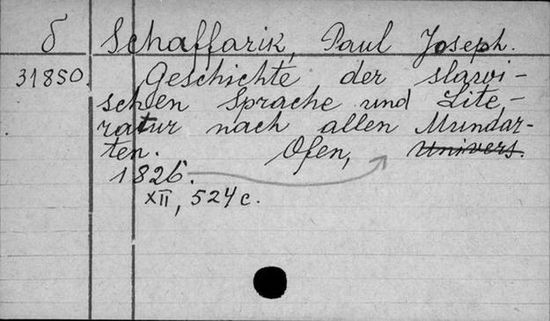 б Schaffarik, Paul Joseph.
31850. Geschichte der slawi-
schen Sprache und Lite-
ratur nach allen Mundar-
ten. Ofen, Univers.
1826.
XII, 524 с.